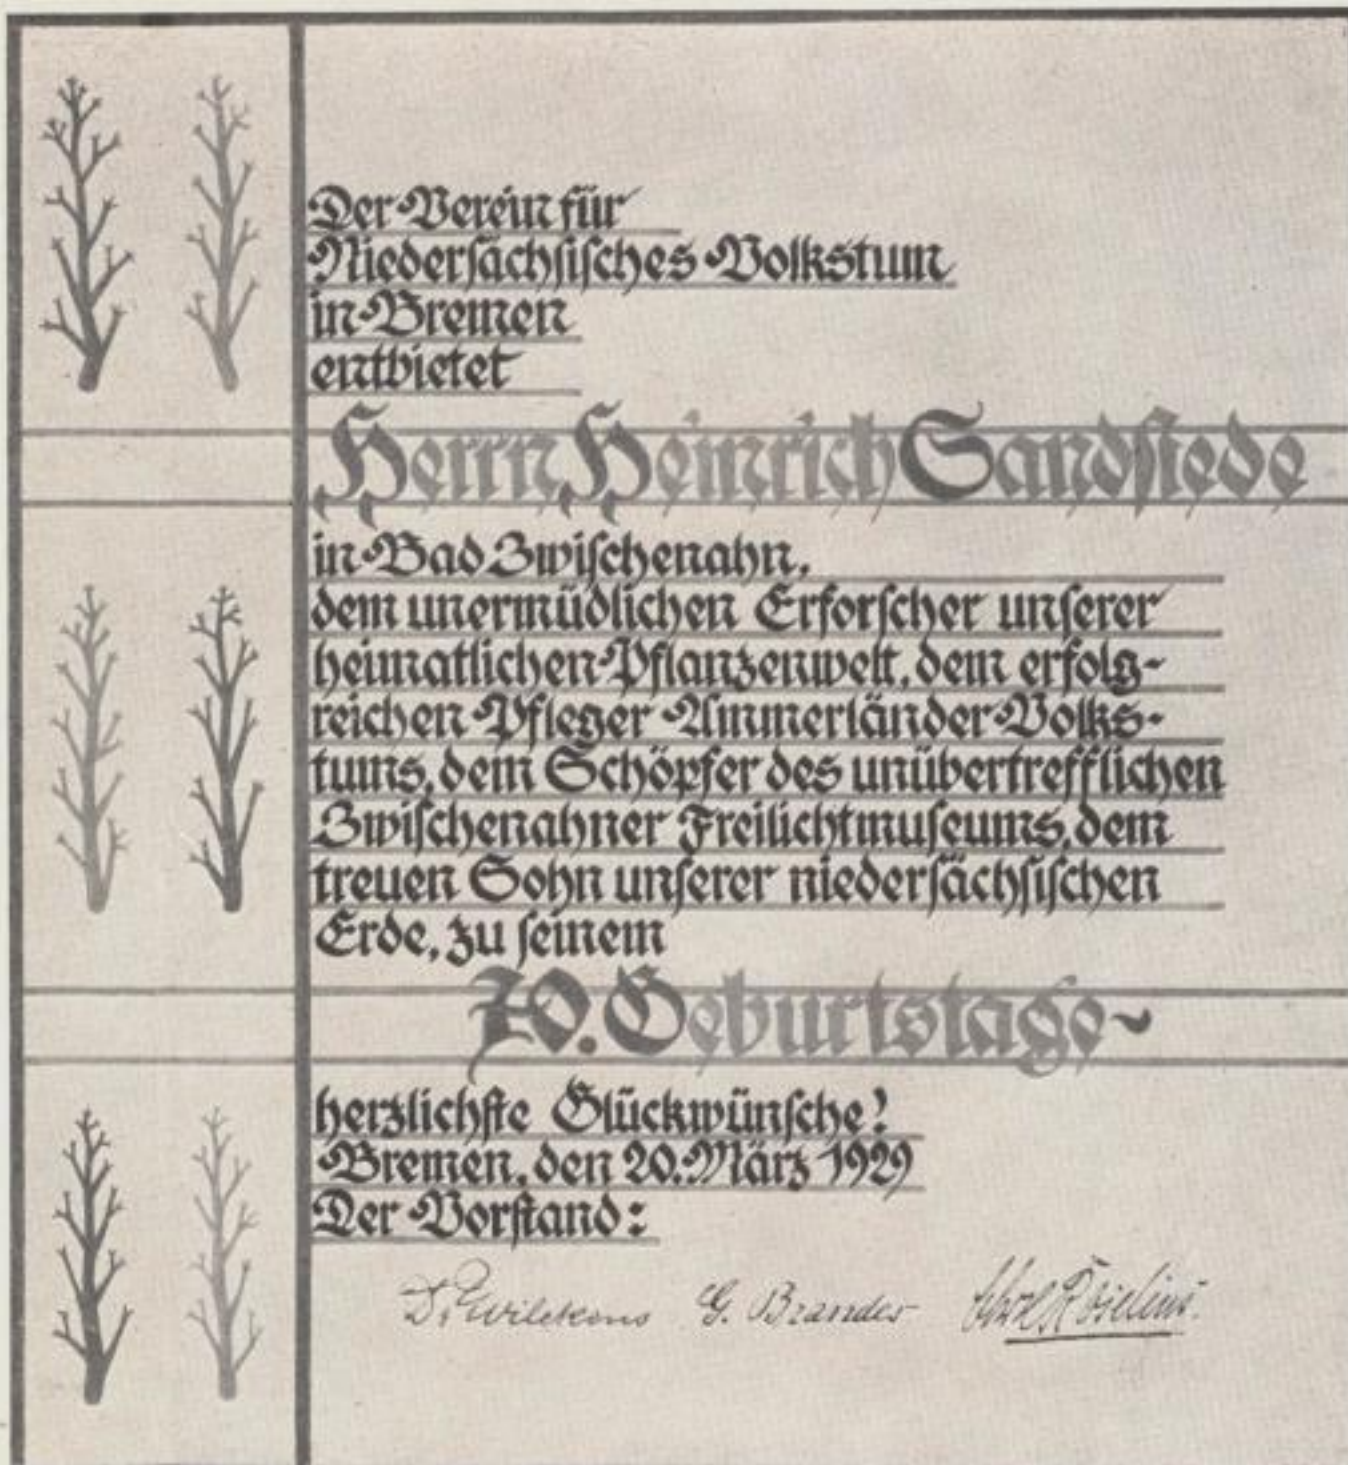 Der Verein für
Niedersächsisches Volkstum
in Bremen
entbietet
Herrn Heinrich Sandstede
in Bad Zwischenahn,
dem unermüdlichen Erforscher unserer
heimatlichen Pflanzenwelt, dem erfolg-
reichen Pfleger Ammerländer Volks-
tums, dem Schöpfer des unübertrefflichen
Zwischenahner Freilichtmuseums, dem
treuen Sohn unserer niedersächsischen
Erde, zu seinem
70. Geburtstage
herzlichste Glückwünsche!
Bremen, den 20. März 1929
Der Vorstand:
G. Brandes